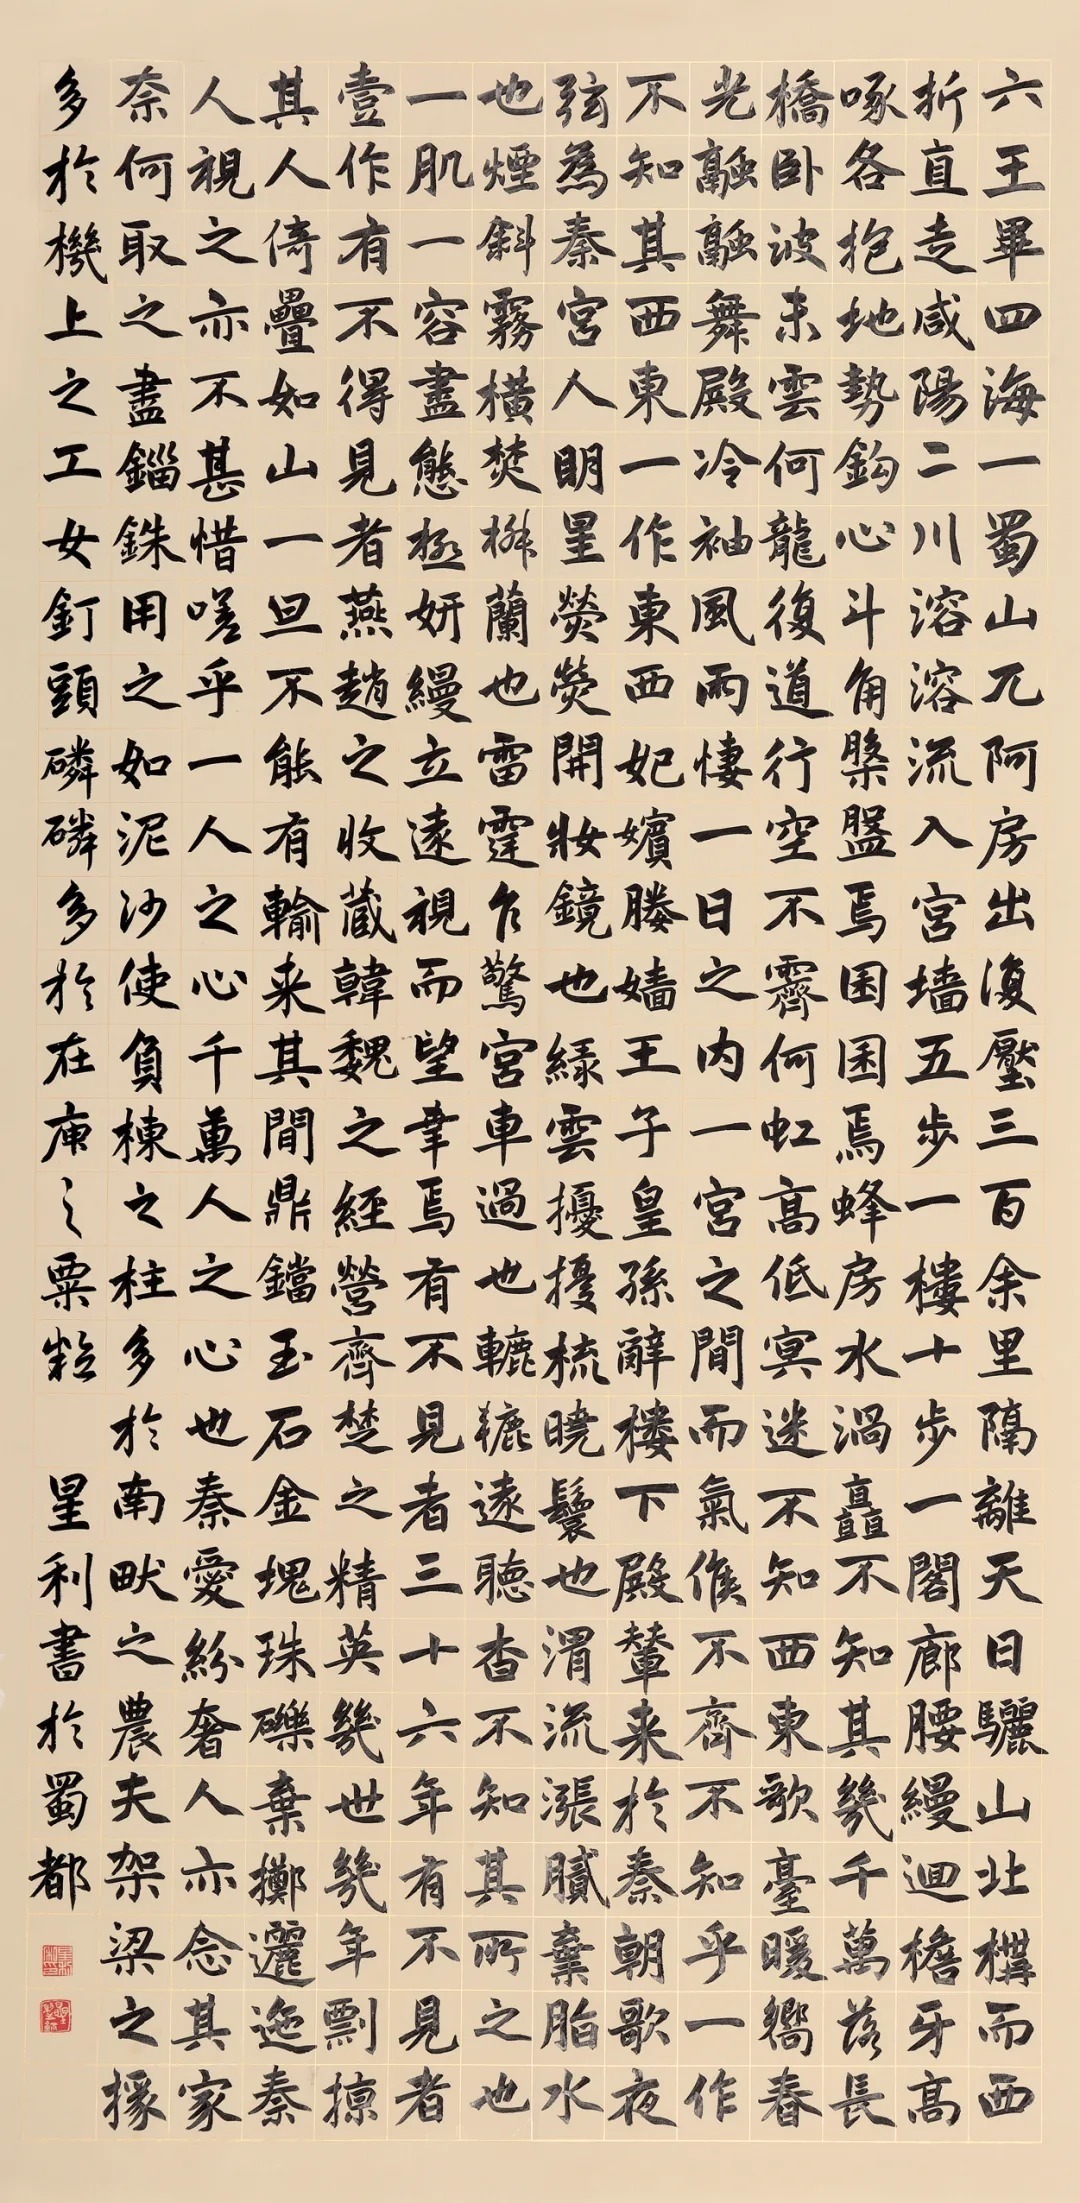 六王畢四海一蜀山兀阿房出復壓三百余里隔離天日驪山北構而西
折直走咸陽二川溶溶流入宮墻五步一樓十步一閣廊腰縵迴檐牙高
啄各抱地勢鈎心斗角槃盤焉囷囷焉蜂房水渦矗不知其幾千萬落長
橋卧波未雲何龍復道行空不霽何虹高低冥迷不知西東歌臺暖響春
光融融舞殿冷袖風雨悽一日之内一宮之間而氣候不齊不知乎一作
不知其西東一作東西妃嬪媵嬙王子皇孫辭樓下殿輦来於秦朝歌夜
弦為秦宮人明星熒熒開妝鏡也緑雲擾擾梳曉鬟也渭流漲膩棄脂水
也煙斜霧橫焚椒蘭也雷霆乍驚宮車過也轆轆遠聽杳不知其所之也
一肌一容盡態極妍縵立遠視而望幸焉有不見者三十六年有不見者
壹作有不得見者燕趙之收藏韓魏之經營齊楚之精英幾世幾年剽掠
其人倚疊如山一旦不能有輸来其間鼎鐺玉石金塊珠礫棄擲邐迤秦
人視之亦不甚惜嗟乎一人之心千萬人之心也秦愛紛奢人亦念其家
奈何取之盡錙銖用之如泥沙使負棟之柱多於南畝之農夫架梁之椽
多於機上之工女釘頭磷磷多於在庾之粟粒
星利書於蜀都